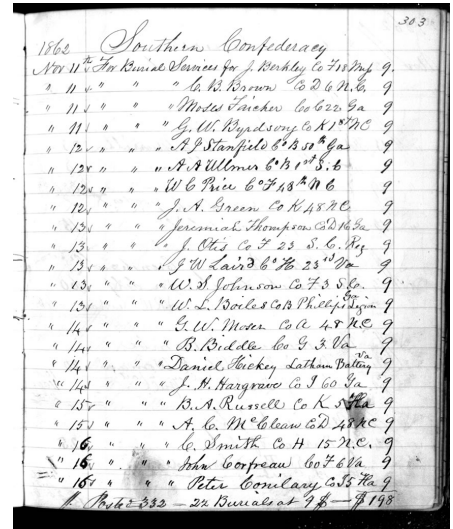 303
1862 Southern Confederacy
Nov 11th For Burial Services for J. Berkley Co F 18 Mip 9.
" 11 " " " C. B. Brown Co D 6 N.C. 9
" 11 " " " Moses Faicher Co C 22 Ga 9
" 11 " " " G. W. Byrdsong Co K 1st NC 9
" 12 " " " A J Stanfield Co B 50th Ga 9
" 12 " " " A A Ullmer Co B 1st S.C 9
" 12 " " " W C Price Co F 48th N C 9
" 12 " " " J. A. Green Co K 48 NC 9
" 13 " " " Jeremiah Thompson Co D 16 Ga 9
" 13 " " " J. Otis Co F 23 S. C. Reg 9
" 13 " " " J W Laird Co H. 23rd Va 9
" 13 " " " W. S. Johnson Co F 3 S C. 9
" 13 " " " W. L. Boiles Co B Phillips Ga Legion 9
" 14 " " " G. W. Moser Co A 48 N.C 9
" 14 " " " B. Biddle Co G 3 Va 9
" 14 " " " Daniel Hickey Latham Battery Va 9
" 14 " " " J. H. Hargrave Co I 60 Ga 9
" 15 " " " B. A. Russell Co K 5 Fla 9
" 15 " " " A. C. McClean Co D 48 NC 9
" 16 " " " C. Smith Co H 15 N.C. 9
" 16 " " " John Corfreau Co F 6 Va 9
" 16 " " " Peter Conilary Co I 5 Fla 9
332 — 22 Burials at 9 $ — $198